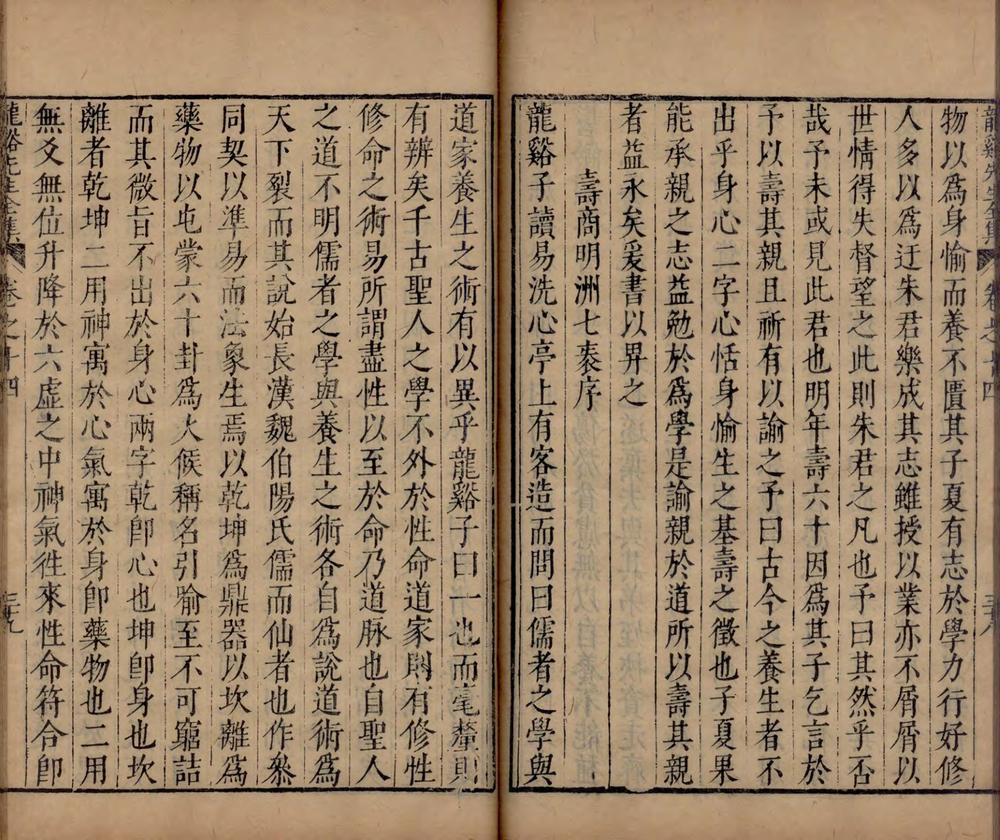 物以爲身愉而養不匱其子夏有志於學力行好修
人多以爲迂朱君樂成其志雖授以業亦不屑屑以
世情得失督望之此則朱君之凡也予曰其然乎否
哉予未或見此君也明年壽六十因爲其子乞言於
予以壽其親且祈有以諭之予曰古今之養生者不
出乎身心二字心恬身愉生之基壽之徵也子夏果
能承親之志益勉於爲學是諭親於道所以壽其親
者益永矣爰書以畀之
壽商明洲七袠序
龍谿子讀易洗心亭上有客造而問曰儒者之學與
道家養生之術有以異乎龍谿子曰一也而毫釐則
有辨矣千古聖人之學不外於性命道家則有修性
修命之術易所謂盡性以至於命乃道脉也自聖人
之道不明儒者之學與養生之術各自爲說道術爲
天下裂而其說始長漢魏伯陽氏儒而仙者也作叅
同契以準易而法象生焉以乾坤爲鼎器以坎離爲
藥物以屯蒙六十卦爲火候稱名引喻至不可窮詰
而其微旨不出於身心兩字乾卽心也坤卽身也坎
離者乾坤二用神寓於心氣寓於身卽藥物也二用
無爻無位升降於六虛之中神氣徃來性命符合卽
龍谿先生全集 卷之十四 三十九